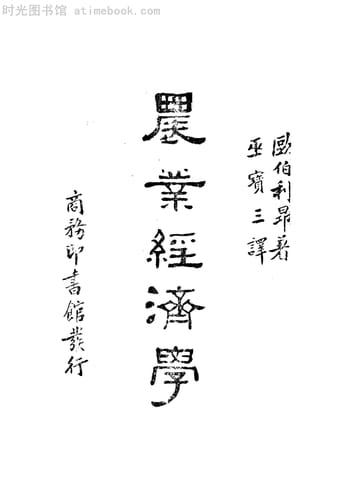 时光图书馆 atimebook.com
歐伯利昂著
巫寶三譯
農業經濟學
商務印書館發行